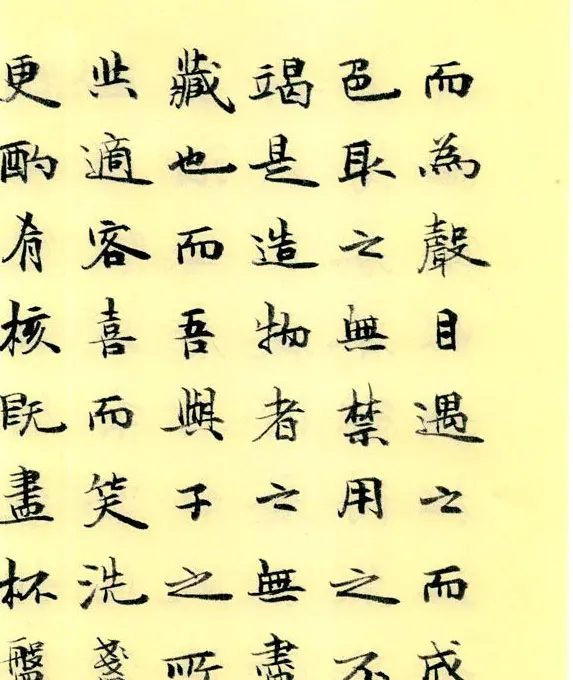 而為聲目遇之而成
色取之無禁用之不
竭是造物者之無盡
藏也而吾與子之所
共適客喜而笑洗盞
更酌肴核既盡杯盤